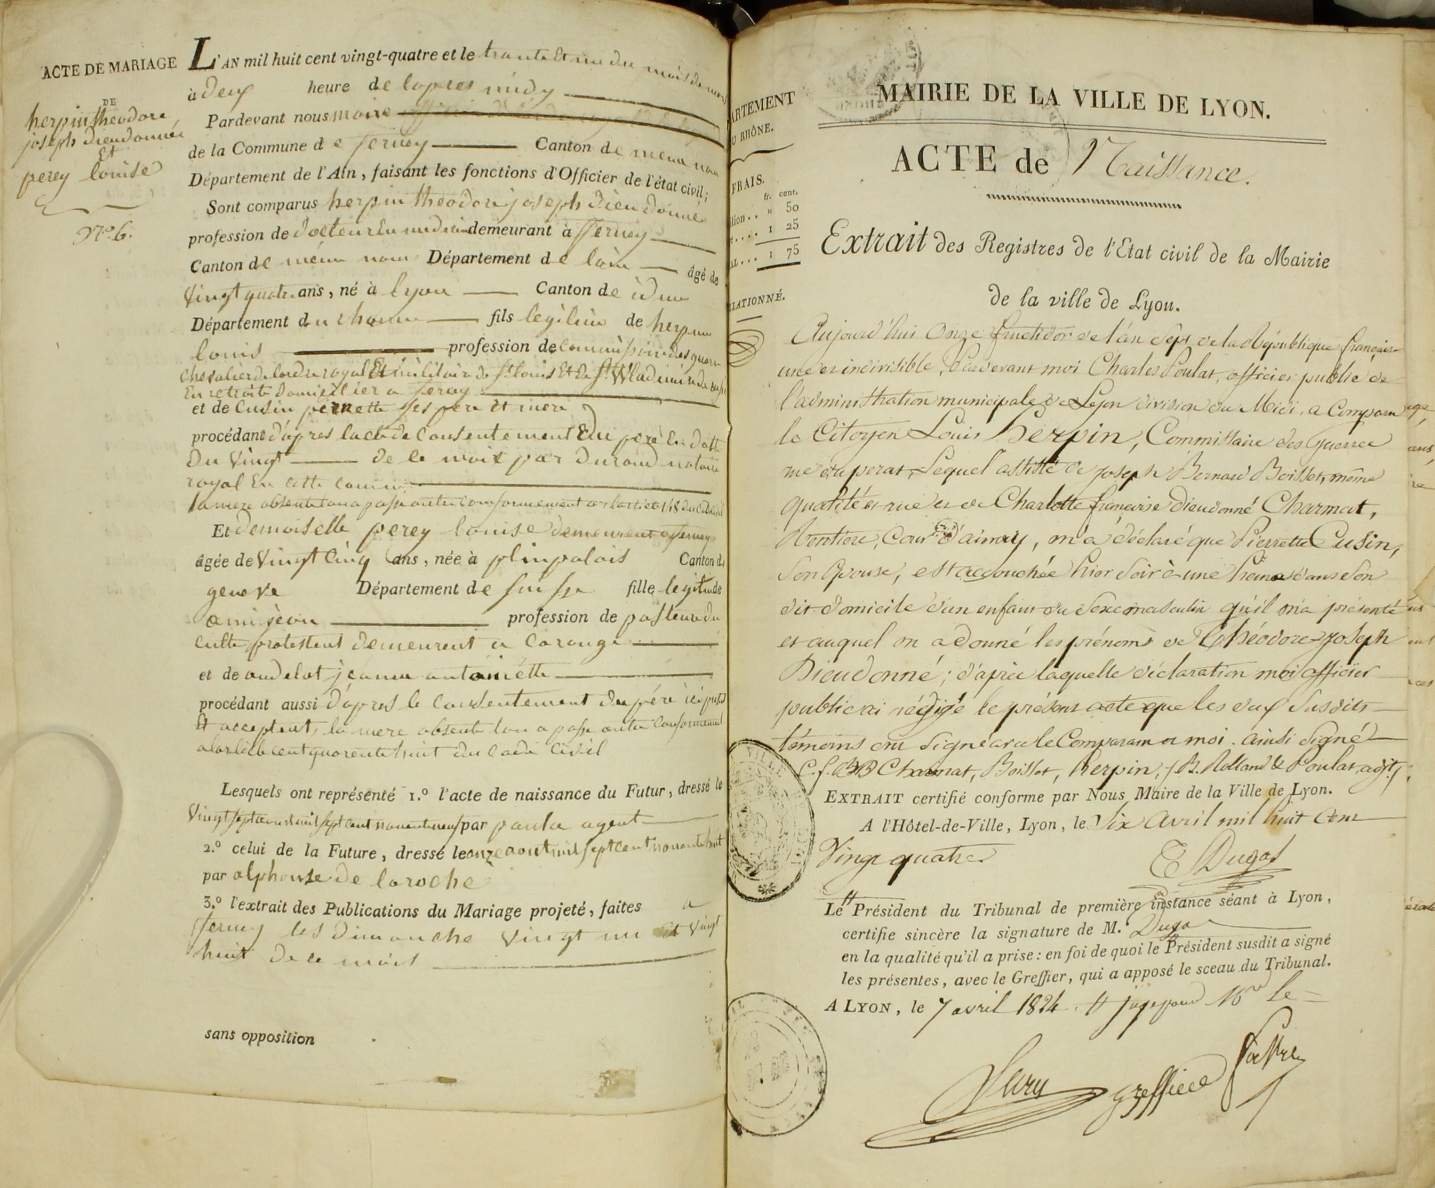 ACTE DE MARIAGE
DE
herpin théodore
joseph dieudonné
Et
perey louise
N.º 6.
L'AN mil huit cent vingt-quatre et le trante Et un du mois de
à deux heure de lapres midy
Pardevant nous maire
de la Commune de ferney Canton de meme nom
Département de l'Ain, faisant les fonctions d'Officier de l'état civil;
Sont comparus herpin theodore joseph dieudonné
profession de docteur En medecine demeurant à ferney
Canton de meme nom Département de lain âgé de
Vingt quatre ans, né à lyon Canton de idem
Département du rhonne fils legitime de herpin
louis profession de Commissaire des guerres
Chevalier de lordre royal Et militaire de St louis Et de St Wladimir
En retraite domicilier a ferney
et de Cusin pernette ses pere Et mere
procédant d'apres lacte de Consentement Du pere En date
Du Vingt de ce mois par Durand notaire
royal En cette commune
la mere absente lon a passé outre conformement a larticle 148 du
Et demoiselle perey louise demeurant a ferney
âgée de Vingt Cinq ans, née à plinpalais Canton de
geneve Département de suisse fille legitime de
profession de pasteur du
Culte protestent demeurent a Carouge
et de audelot jeanne antoinette
procédant aussi d'apres le Consentement du père ici présent
Et acceptent, la mere absente lon a passé outre Conformement
a larticle cent quarente huit du Code Civil
Lesquels ont représenté 1.º l'acte de naissance du Futur, dressé le
Vingt sept aout mil sept cent nonente neuf par paula agent
2.º celui de la Future, dressé le onze aout mil sept cent nonente huit
par alphonse de laroche
3.º l'extrait des Publications du Mariage projeté, faites a
ferney les dimanche Vingt un et Vingt
huit de ce mois
sans opposition
MAIRIE DE LA VILLE DE LYON.
ACTE de Naissance.
ARTEMENT
U RHÔNE.
FRAIS.
fr. cent.
50
1 25
1 75
LATIONNÉ.
Extrait des Registres de l'Etat civil de la Mairie
de la ville de Lyon.
Aujourd'hui Onze fructidor de l'an Sept de la République française
une et indivisible, Pardevant moi Charles Poulat, officier public de
l'administration municipale de Lyon division du Midi, a Comparu
le Citoyen Louis Herpin, Commissaire des Guerres
rue du perat, Lequel assisté de joseph Bernard Boissot, même
qualité et rue et de Charlotte françoise Dieudonné Charmat,
Rentiere, Cour d'ainay, m'a déclaré que Pierrette Cusin,
Son Epouse, est accouchée hier Soir à une heure dans Son
dit domicile d'un enfant du Sexe masculin qu'il m'a présenté
et auquel on a donné les prénoms de Théodore-joseph
Dieudonné; d'après laquelle déclaration moi officier
public ai rédigé le présent acte que les deux Susdits
témoins ont Signé avec le Comparant et moi. ainsi Signé
C. f. D Charmat, Boissot, Herpin, J. B. Rolland & Poulat, adjt
EXTRAIT certifié conforme par Nous Maire de la Ville de Lyon.
A l'Hôtel-de-Ville, Lyon, le Six Avril mil huit Cent
Vingt quatre
Dugas
Le Président du Tribunal de première instance séant à Lyon,
certifie sincère la signature de M. Dugas
en la qualité qu'il a prise: en foi de quoi le Président susdit a signé
les présentes, avec le Greffier, qui a apposé le sceau du Tribunal.
A LYON, le 7 avril 1824.
greffier